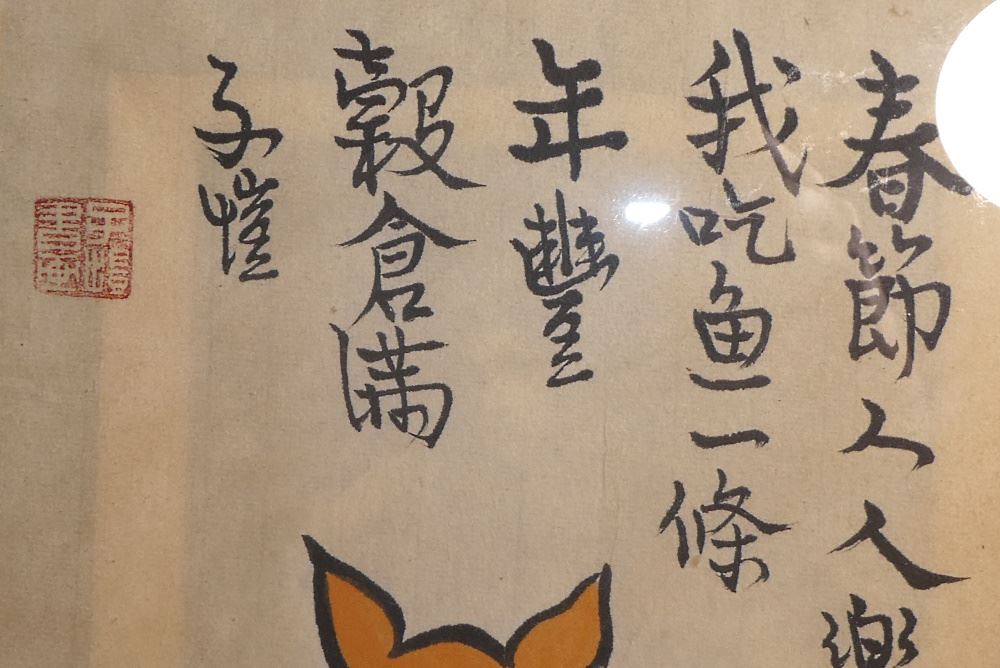 春節人人樂
我吃鱼一條
年豐
穀倉满
子愷
子愷書畫